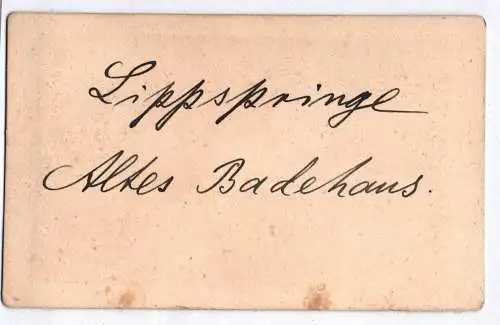 Lippspringe
Altes Badehaus.